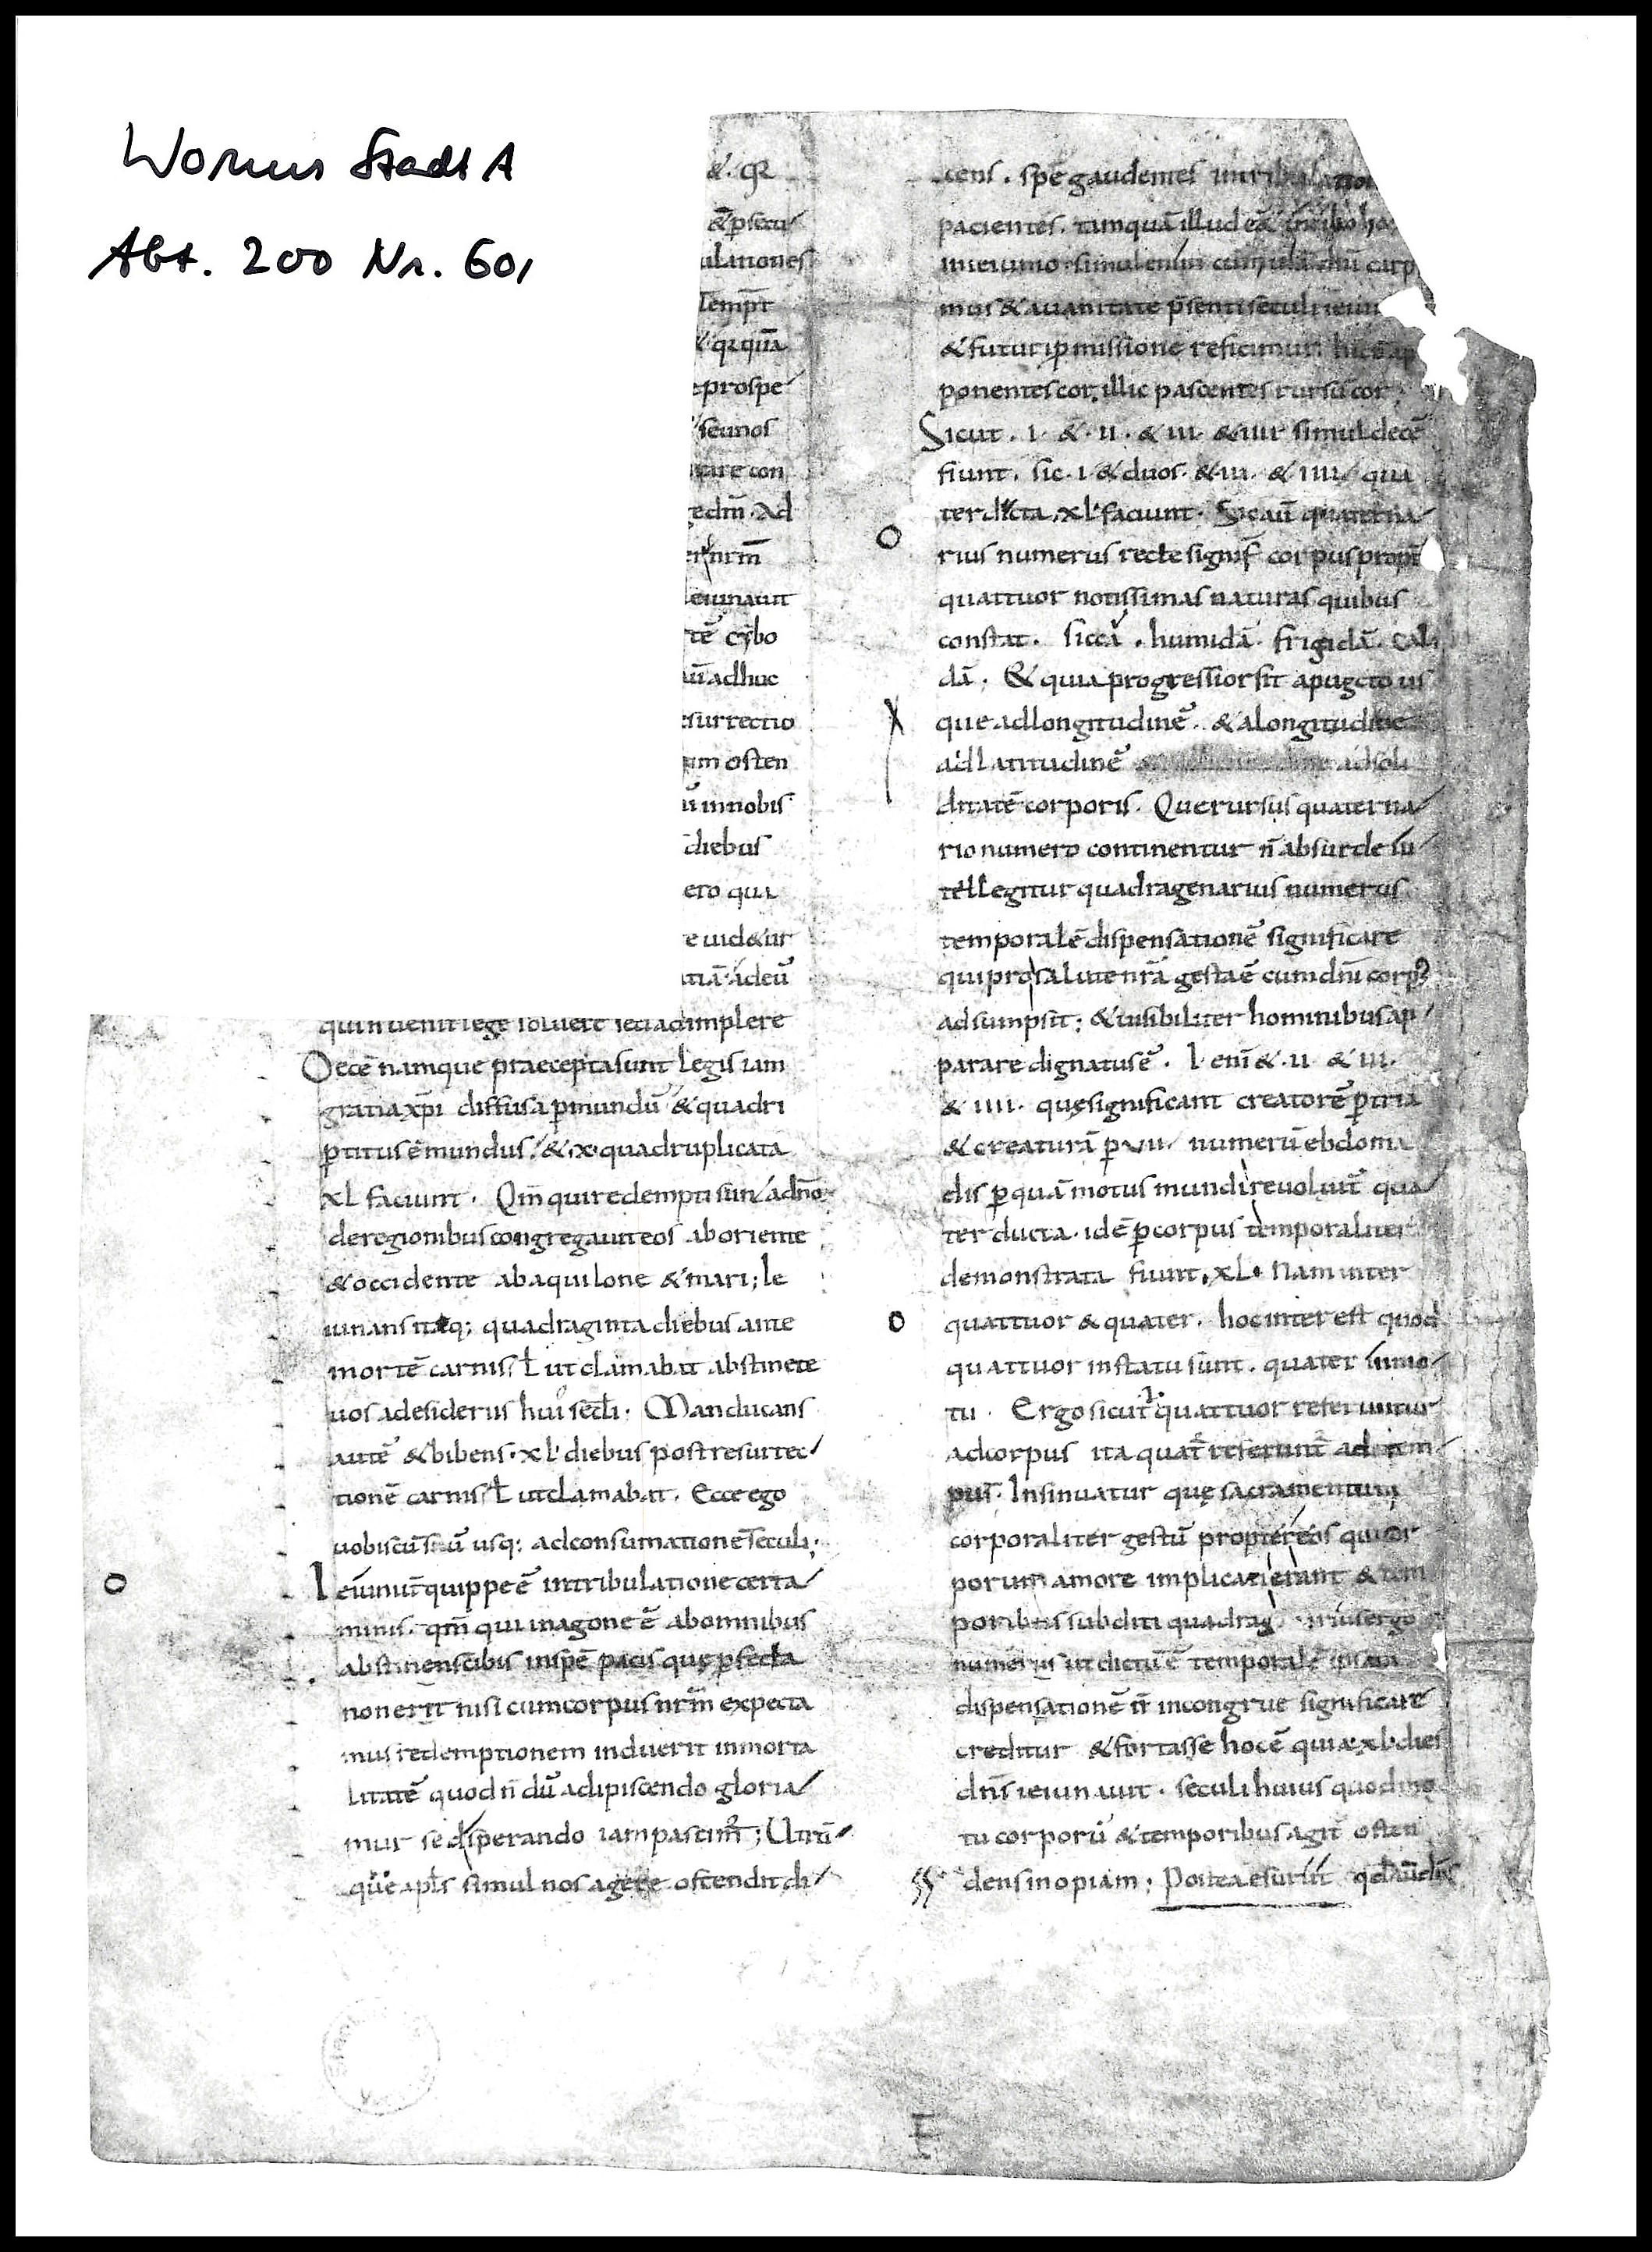 Worms StadtA
Abt. 200 Nr. 601
&. qr̄
&p̄secu
ulationes
Temp̄r
& qꝛ quā
eprospe
seunos
tare con
edm̄. Ad
nr̄m
eiunauit
tē cybo
ū adhuc
esurrectio
um osten
ū innobis
diebus
ero qua
e uid&ur
tiā adeū
quin uenit lege soluere sed adimplere
Decē namque praecepta sunt legis iam
gratia xp̄i diffusa p̄ mundū & quadri
p̄titus ē mundus. & x quadruplicata
xl faciunt. Qm̄ qui redempti sunt adnō
deregionibus congregauit eos aboriente
& occidente abaquilone & mari; Ie
iunans itaq; quadraginta diebus ante
mortē carnis ł ut clamabat abstinete
uos adesideriis hui sēcli. Manducans
autē & bibens. xl diebus post resurrec
tionē carnis ł ut clamabat. Ecce ego
uobiscū sū usq; adconsumationē sēculi;
Ieiuniū quippe ē intribulatione certa
minis. qm̄ qui inagone ē abomnibus
abstinens cibis inspē pacis quę p̄fecta
non erit nisi cum corpus nr̄m expecta
mus redemptionem induerit inmorta
litatē quod n̄ dū adipiscendo gloria
mur sed sperando iam pascimꝰ; Utrū
que apłs simul nos agere ostendit di
cens. spē gaudentes intribulation
pacientes. tamquā illud
inieiunio simul enim
mus & auanitate p̄senti sēculi ieiun
& futuri p̄missione reficimur hic
ponentes cor. illic pascentes rursū cor;
Sicut. I. &. II. & III. & IIII simul decē
fiunt. sic. I. & duos. & III. & IIII. qua
ter ducta. xl faciunt. Sic aū quaterna
rius numerus recte signif̄ corpus propt̄
quattuor notissimas naturas quibus
constat. siccā. humidā. frigidā. cali
dā. & quia progressior fit apugcto us
que adlongitudinē. & alongitudine
adlatitudinē adsoli
ditatē corporis. Que rursus quaterna
rio numero continentur n̄ absurde in
tellegitur quadragenarius numerus
temporalē dispensationē significare
qui pro salute nr̄a gesta ē cum dn̄i corpꝰ
adsumpsit; & uisibiliter hominibus ap
parare dignatus ē. I. enī &. II. & III.
& IIII. quę significant creatorē p̄ tria
& creaturā p̄ VII numerū ebdoma
dis p̄ quā motus mundi reuoluit̄ qua
ter ducta. idē p̄ corpus temporaliter
demonstrata fiunt. xl. Nam inter
quattuor & quater. hoc inter est quod
quattuor instatu sunt. quater inmo
tu. Ergo sicut quattuor referuntur
adcorpus ita quat̄ referunt̄ ad tem
pus. Insinuatur quę sacramentum
corporaliter gestū propter eos qui cor
porum amore implicati erant & tem
poribus subditi quadrag nrius ergo
numerus ut dictū ē temporalē ipsam
dispensationē n̄ incongrue significare
creditur & fortasse hoc ē quia xl dies
dn̄s ieiunauit. seculi huius quod mo
tu corporū & temporibus agit̄ osten
dens inopiam; Postea esuriit qd̄